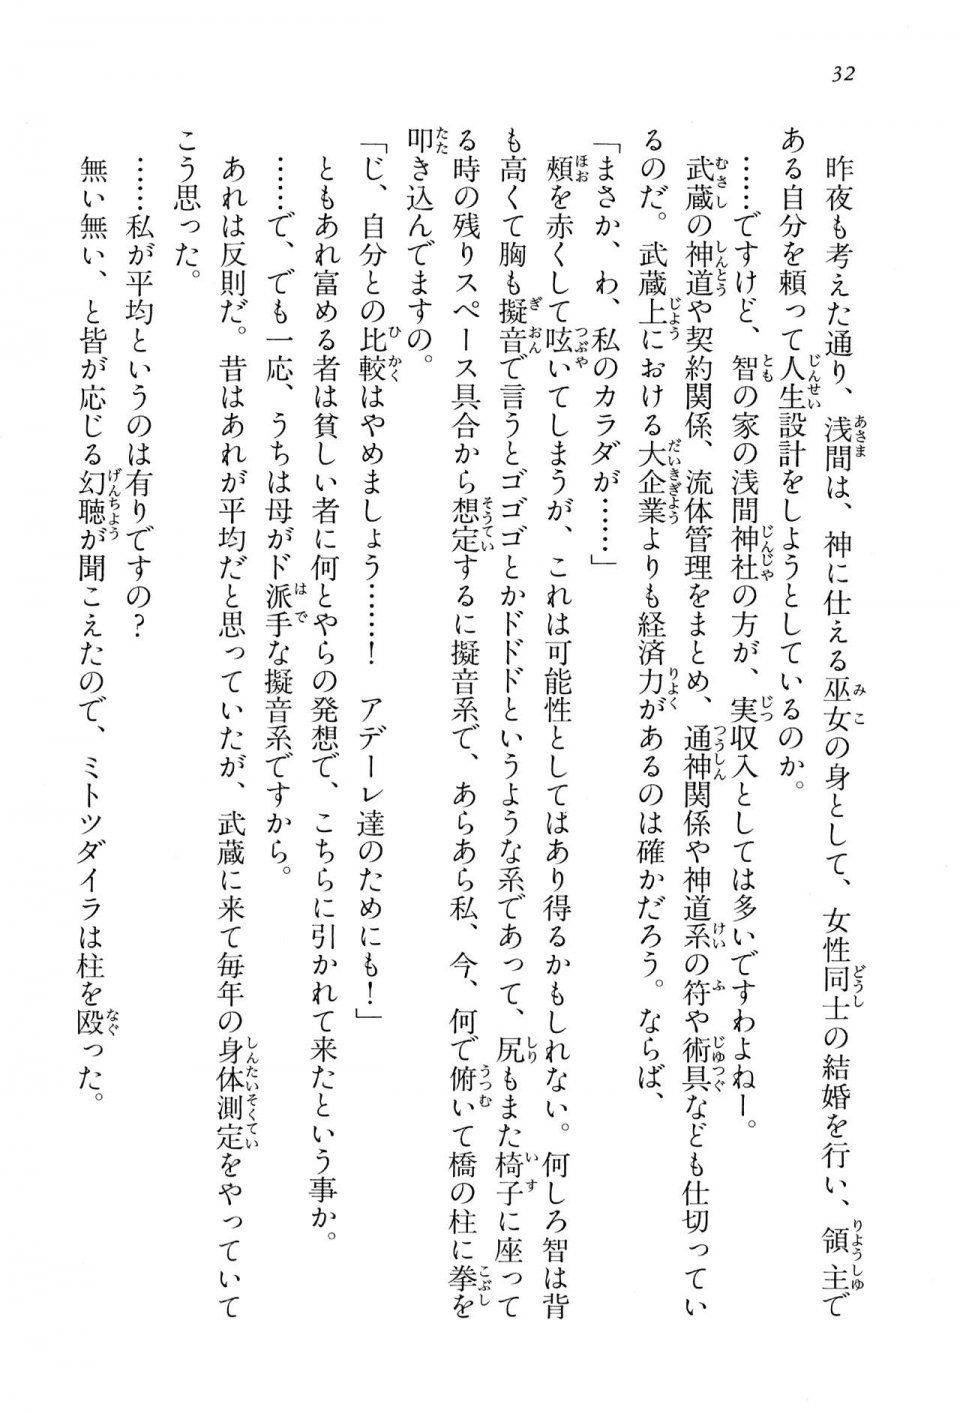 32
昨夜も考えた通り、浅間は、神に仕える巫女の身として、女性同士の結婚を行い、領主で
ある自分を頼って人生設計をしようとしているのか。
……ですけど、智の家の浅間神社の方が、実収入としては多いですわよねー。
武蔵の神道や契約関係、流体管理をまとめ、通神関係や神道系の符や術具なども仕切ってい
るのだ。武蔵上における大企業よりも経済力があるのは確かだろう。ならば、
「まさか、わ、私のカラダが……」
頬を赤くして呟いてしまうが、これは可能性としてはあり得るかもしれない。何しろ智は背
も高くて胸も擬音で言うとゴゴゴとかドドドというような系であって、尻もまた椅子に座って
る時の残りスペース具合から想定するに擬音系で、あらあら私、今、何で俯いて橋の柱に拳を
叩き込んでますの。
「じ、自分との比較はやめましょう……！　アデーレ達のためにも！」
ともあれ富める者は貧しい者に何とやらの発想で、こちらに引かれて来たという事か。
……で、でも一応、うちは母がド派手な擬音系ですから。
あれは反則だ。昔はあれが平均だと思っていたが、武蔵に来て毎年の身体測定をやっていて
こう思った。
……私が平均というのは有りですの？
無い無い、と皆が応じる幻聴が聞こえたので、ミトツダイラは柱を殴った。